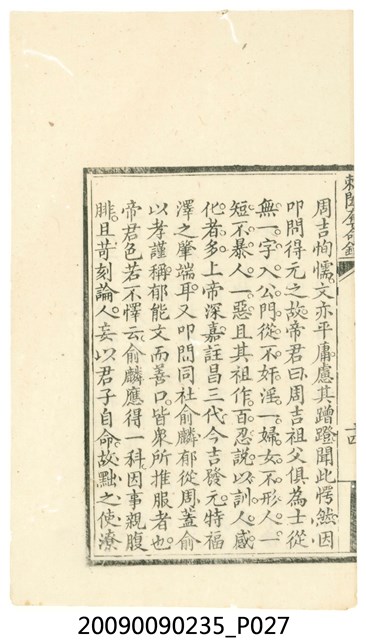 周吉恂懦。文亦平庸。慮其蹭蹬。聞此愕然。因
叩問得元之故。帝君曰。周吉祖父俱為士。從
無一字入公門。從不奸淫一婦女。不形人一
短。不暴人一惡。且其祖作百忍說以訓人。感
化者多。上帝深嘉。註昌三代。今吉發元。特福
澤之肇端耳。又叩問同社俞麟郁從周。蓋俞
以孝謹稱。郁能文而善口。皆衆所推服者也。
帝君色若不懌云。俞麟應得一科。因事親腹
誹。且苛刻論人。妄以君子自命。故黜之。使潦
20090090235_P027